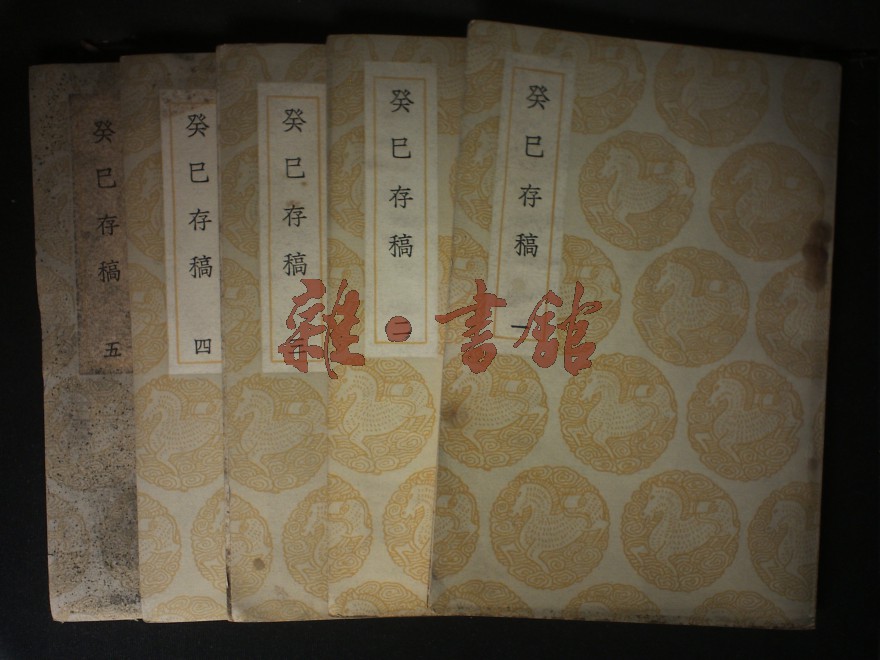 癸巳存稿 一
癸巳存稿 二
癸巳存稿 三
癸巳存稿 四
癸巳存稿 五
雜·書館